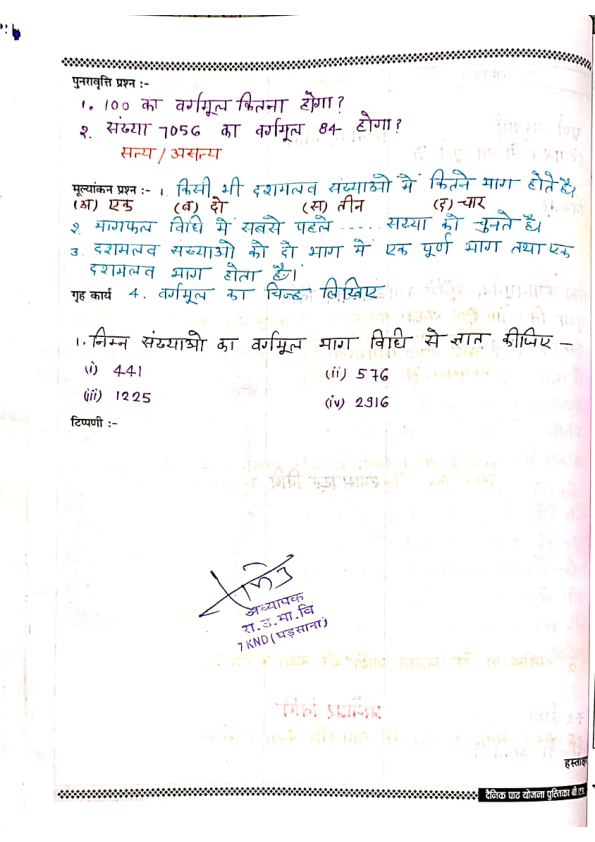 पुनरावृत्ति प्रश्न :-
१. 100 का वर्गमूल कितना होगा?
२. संख्या 7056 का वर्गमूल 84 होगा?
सत्य / असत्य
मूल्यांकन प्रश्न :- १. किसी भी दशमलव संख्याओ में कितने भाग होते है।
(अ) एक (ब) दो (स) तीन (द) चार
२. भागफल विधि में सबसे पहले ..... संख्या को चुनते है।
3. दशमलव संख्याओ को दो भाग में एक पूर्ण भाग तथा एक
दशमलव भाग होता है।
गृह कार्य 4. वर्गमूल का चिन्ह लिखिए
१. निम्न संख्याओ का वर्गमूल भाग विधि से ज्ञात कीजिए –
(i) 441 (ii) 576
(iii) 1225 (iv) 2916
टिप्पणी :-
अध्यापक
रा.उ.मा.वि
7 KND (घड़साना)
हस्ताक्ष
दैनिक पाठ योजना पुस्तिका बी.एड.